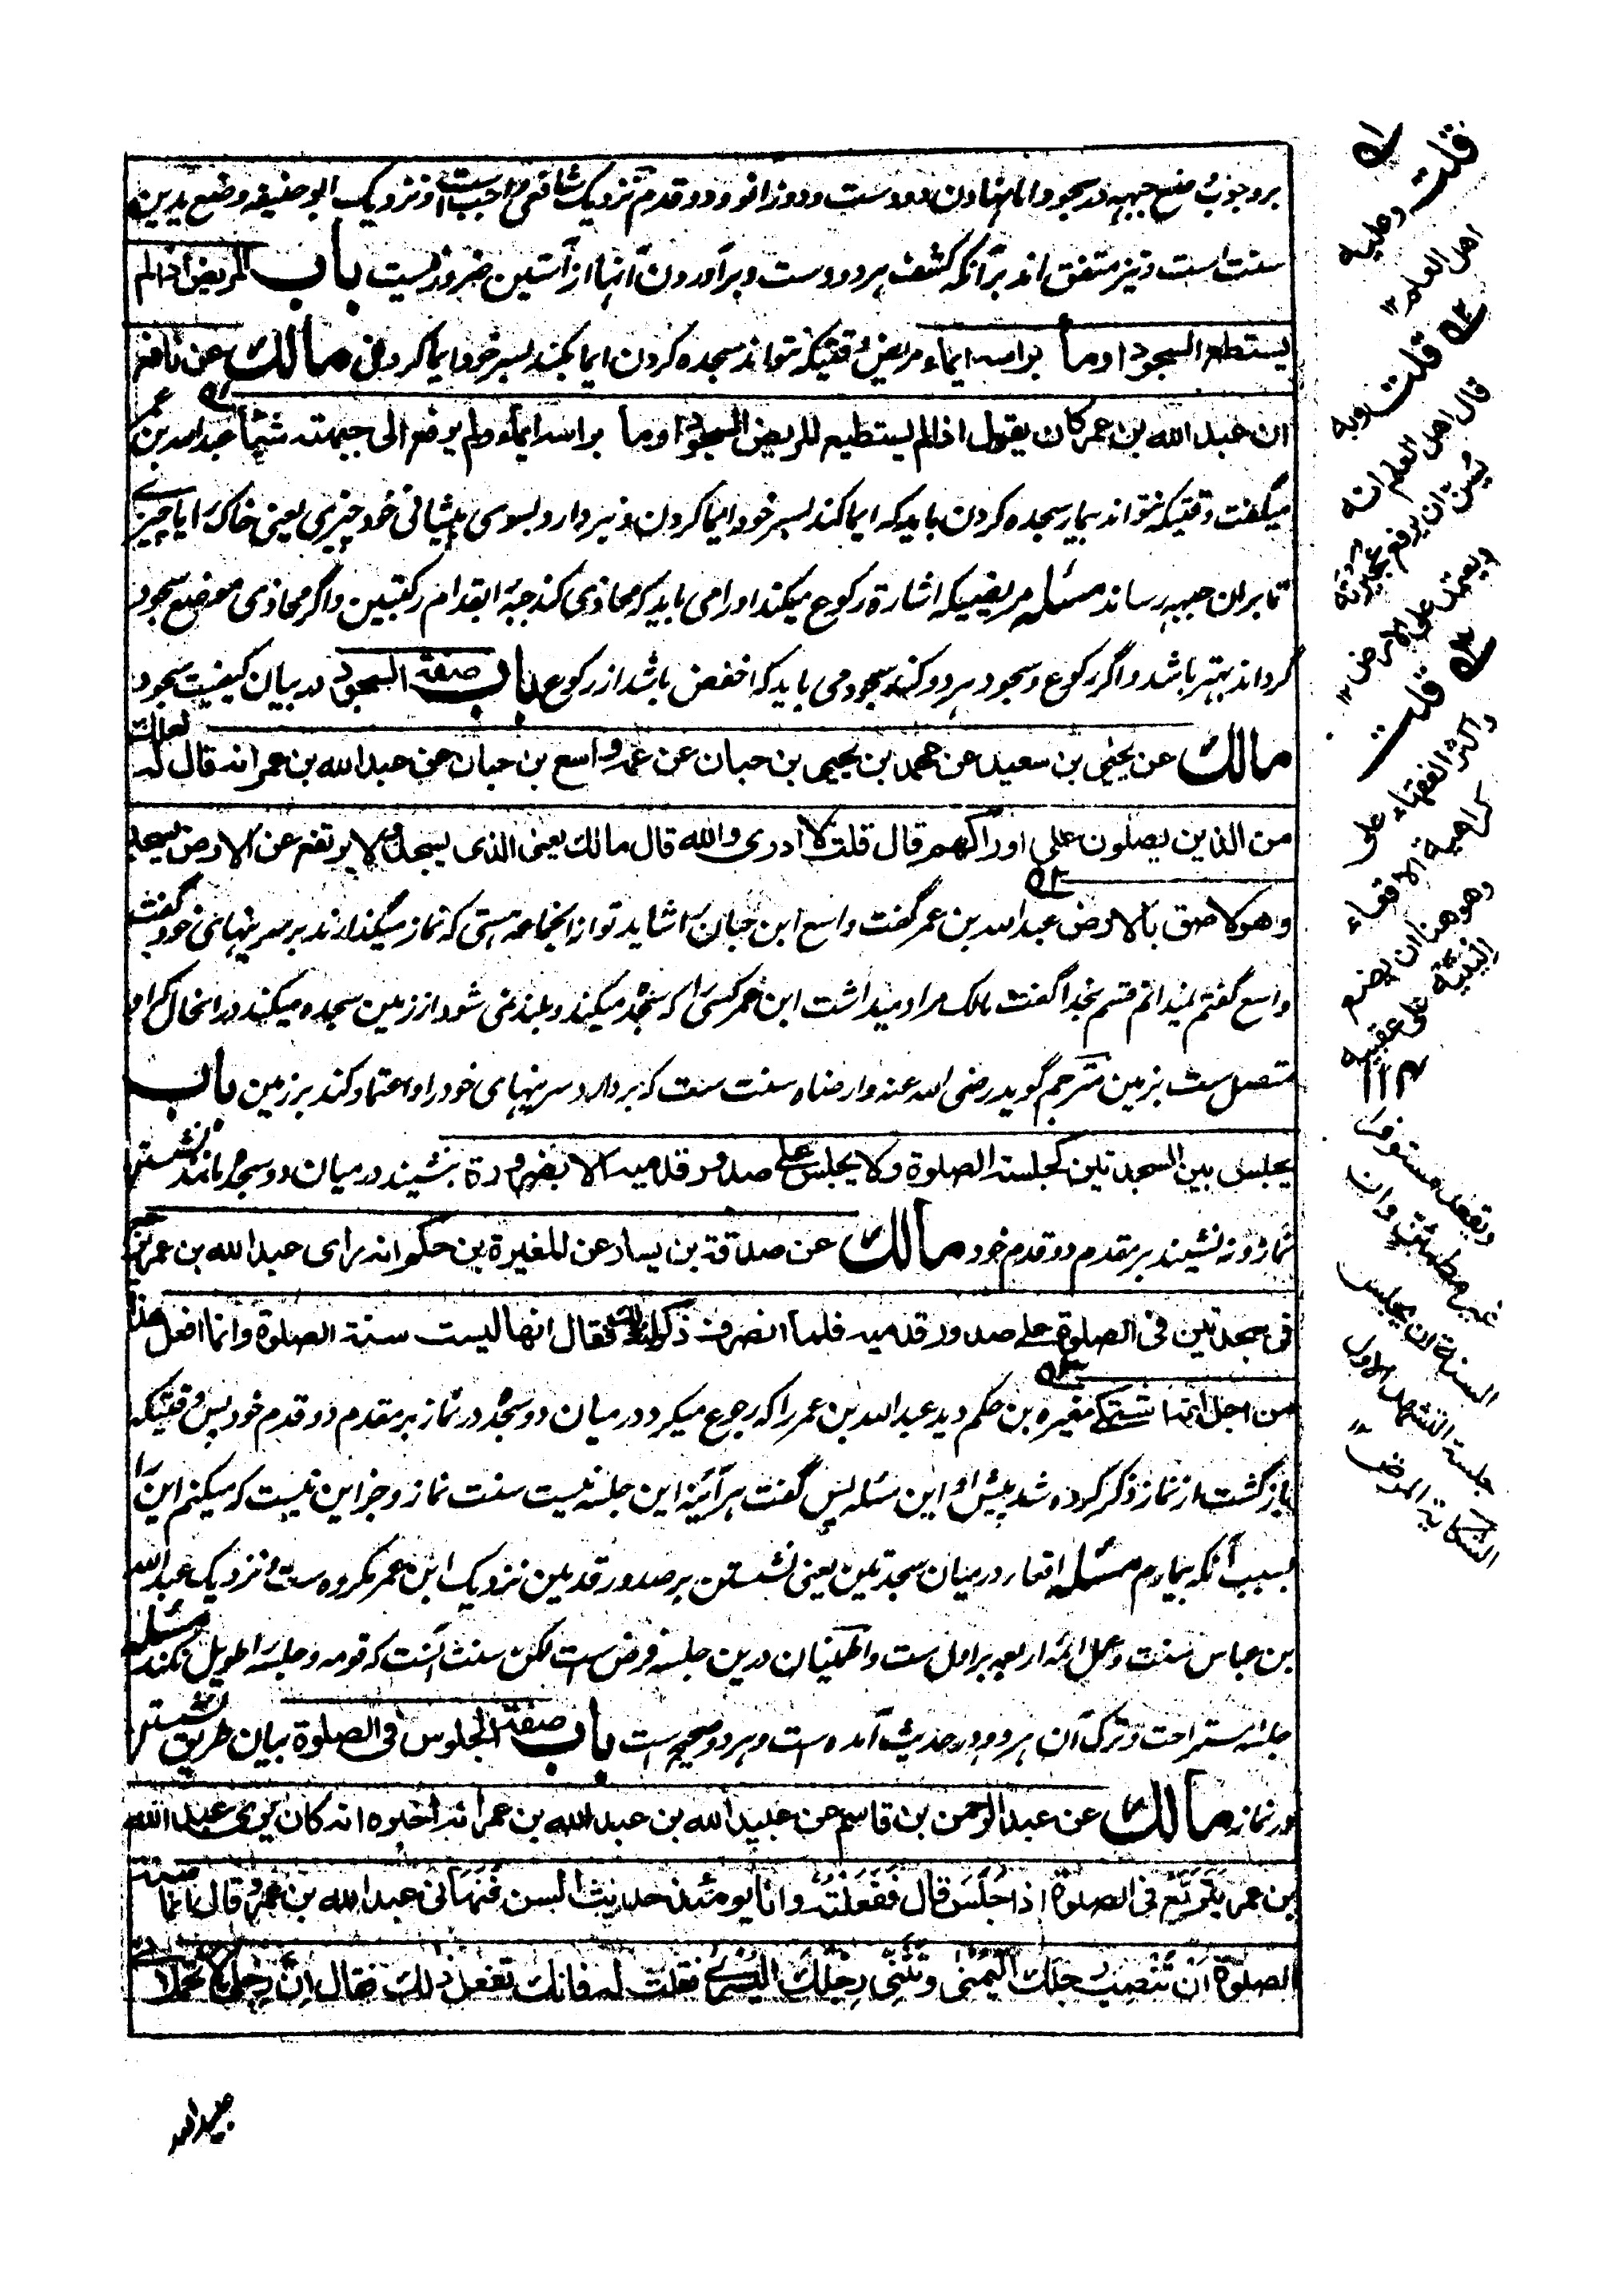 بر وجوب وضع جبهه در سجود و اما نهادن دو دست و دو زانو و دو قدم نزدیک شافعی واجب است و نزدیک ابو حنیفه وضع یدین
سنت است و نیز متفق اند بر آنکه کشف هر دو دست و بر آوردن آنها از آستین ضرور نیست باب المریض اذا لم
یستطع السجود اومأ براسه ایماء مریض وقتیکه نتواند سجده کردن ایما بکند بسر خود ایما کردنی مالک عن نافع
ان عبد الله بن عمر کان یقول اذا لم یستطیع المریض السجود اومأ براسه ایماء و لم یرفع الی جبهته شیئا عبد الله بن عمر
میگفت وقتیکه نتواند بیمار سجده کردن باید که ایما کند بسر خود ایما کردن و نبردارد بسوی پیشانی خود چیزی یعنی خاک را یا چیزے
تا بر ان جبهه رساند مسئله مریضیکه اشارة رکوع میکند او را می باید که محاذی کند جبهه را بقدام رکبتین و اگر محاذی موضع سجود
گرداند بهتر باشد و اگر رکوع و سجود هر دو کند سجود می باید که اخفض باشد از رکوع باب صفة السجود در بیان کیفیت سجود
مالک عن یحیی بن سعید عن محمد بن یحیی بن حبان عن عمه واسع بن حبان عن عبد الله بن عمر انه قال له لعلک
من الذین یصلون علی اوراکهم قال قلت لا ادری والله قال مالک یعنی الذی یسجد ولا یرتفع عن الارض یسجد
وهو لاصق بالارض عبد الله بن عمر گفت واسع ابن حبان را شاید تو از انجماعه هستی که نماز میگذارند بر سرینهای خود گفت
واسع گفتم نمیدانم قسم بخدا گفت مالک مراد میداشت ابن عمر کسی را که سجده میکند و بلند نمی شود از زمین سجده میکند در انحال که او
متصل ست بزمین مترجم گوید رضی الله عنه وارضاه سنت ست که بردارد سرینهای خود را و اعتماد کند بر زمین باب
یجلس بین السجدتین کجلسة الصلوة ولا یجلس علی صدور قدمیه الا بضرورة بنشیند در میان دو سجده مانند نشستن
نماز و نه نشیند بر مقدم دو قدم خود مالک عن صدقة بن یسار عن المغیرة بن حکیم انه رای عبد الله بن عمر یرجع
فی سجدتین فی الصلوة علی صدور قدمیه فلما انصرف ذکر له ذلک فقال انها لیست سنة الصلوة وانما افعل هذا
من اجل انی اشتکی مغیره بن حکیم دید عبد الله بن عمر را که رجوع میکرد در میان دو سجده در نماز بر مقدم دو قدم خود پس وقتیکه
بازگشت از نماز ذکر کرده شد پیش او این مسئله پس گفت هر آئینه این جلسه نیست سنت نماز و جز این نیست که میکنم این را
بسبب آنکه بیمارم مسئله اقعا در میان سجدتین یعنی نشستن بر صدور قدمین نزدیک ابن عمر مکروه ست و نزدیک عبد الله
بن عباس سنت و عمل ائمه اربعه بر اول ست و اطمینان درین جلسه فرض ست لکن سنت آنست که قومه و جلسه را طویل نکند مسئله
جلسه استراحت و ترک آن هر دو در حدیث آمده است و هر دو صحیح است باب صفة الجلوس فی الصلوة بیان طریق نشستن
در نماز مالک عن عبد الرحمن بن قاسم عن عبید الله بن عبد الله بن عمر انه اخبره انه کان یری عبد الله
بن عمر یتربع فی الصلوة اذا جلس قال ففعلته وانا یومئذ حدیث السن فنهانی عبد الله بن عمر وقال انما سنة
الصلوة ان تنصب رجلک الیمنی وتثنی رجلک الیسرے فقلت له فانک تفعل ذلک فقال ان رجلی لا تحملانی
قلت وعلیه
اهل العلم ۱۲
قلت وبه
قال اهل العلم انه
یسن ان یرفع عجیزته
ویعتمد علی الارض ۱۲
قلت
واکثر الفقهاء علی
کراهیة الاقعاء
وهو هنا ان یضع
الیتیه علی عقبیه
ویقعد مستوفزا
غیر مطمئن وان
السنة ان یجلس
جلسة التشهد الاول